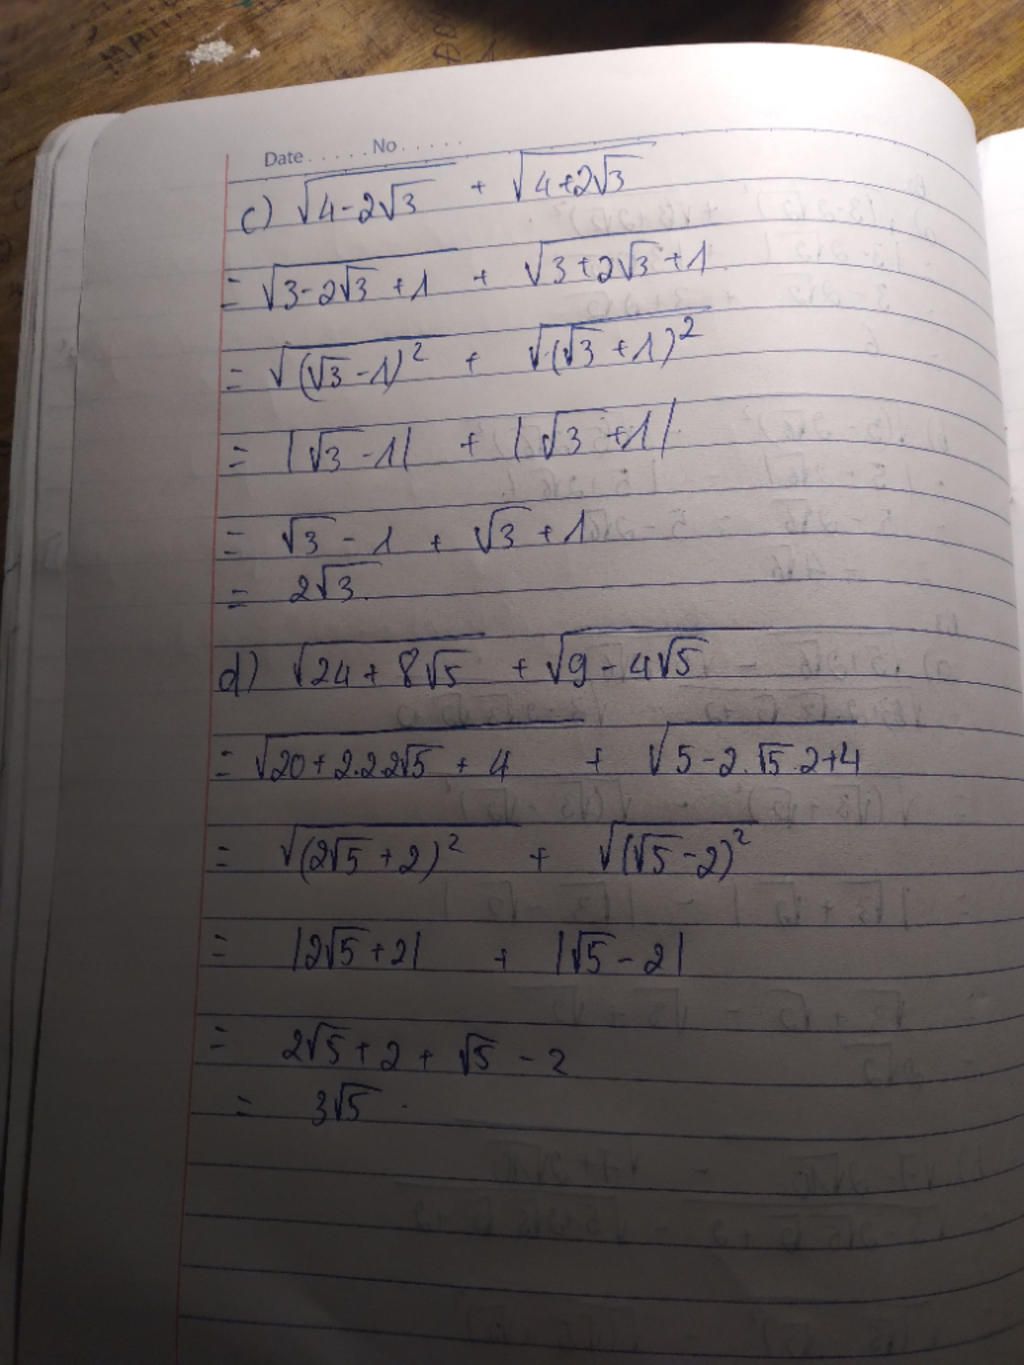 Date..... No.....
c) √(4-2√3) + √(4+2√3)
= √(3-2√3+1) + √(3+2√3+1)
= √((√3-1)²) + √((√3+1)²)
= |√3-1| + |√3+1|
= √3-1 + √3+1
= 2√3.
d) √(24+8√5) + √(9-4√5)
= √(20+2.2.2√5+4) + √(5-2.√5.2+4)
= √((2√5+2)²) + √((√5-2)²)
= |2√5+2| + |√5-2|
= 2√5+2+√5-2
= 3√5.